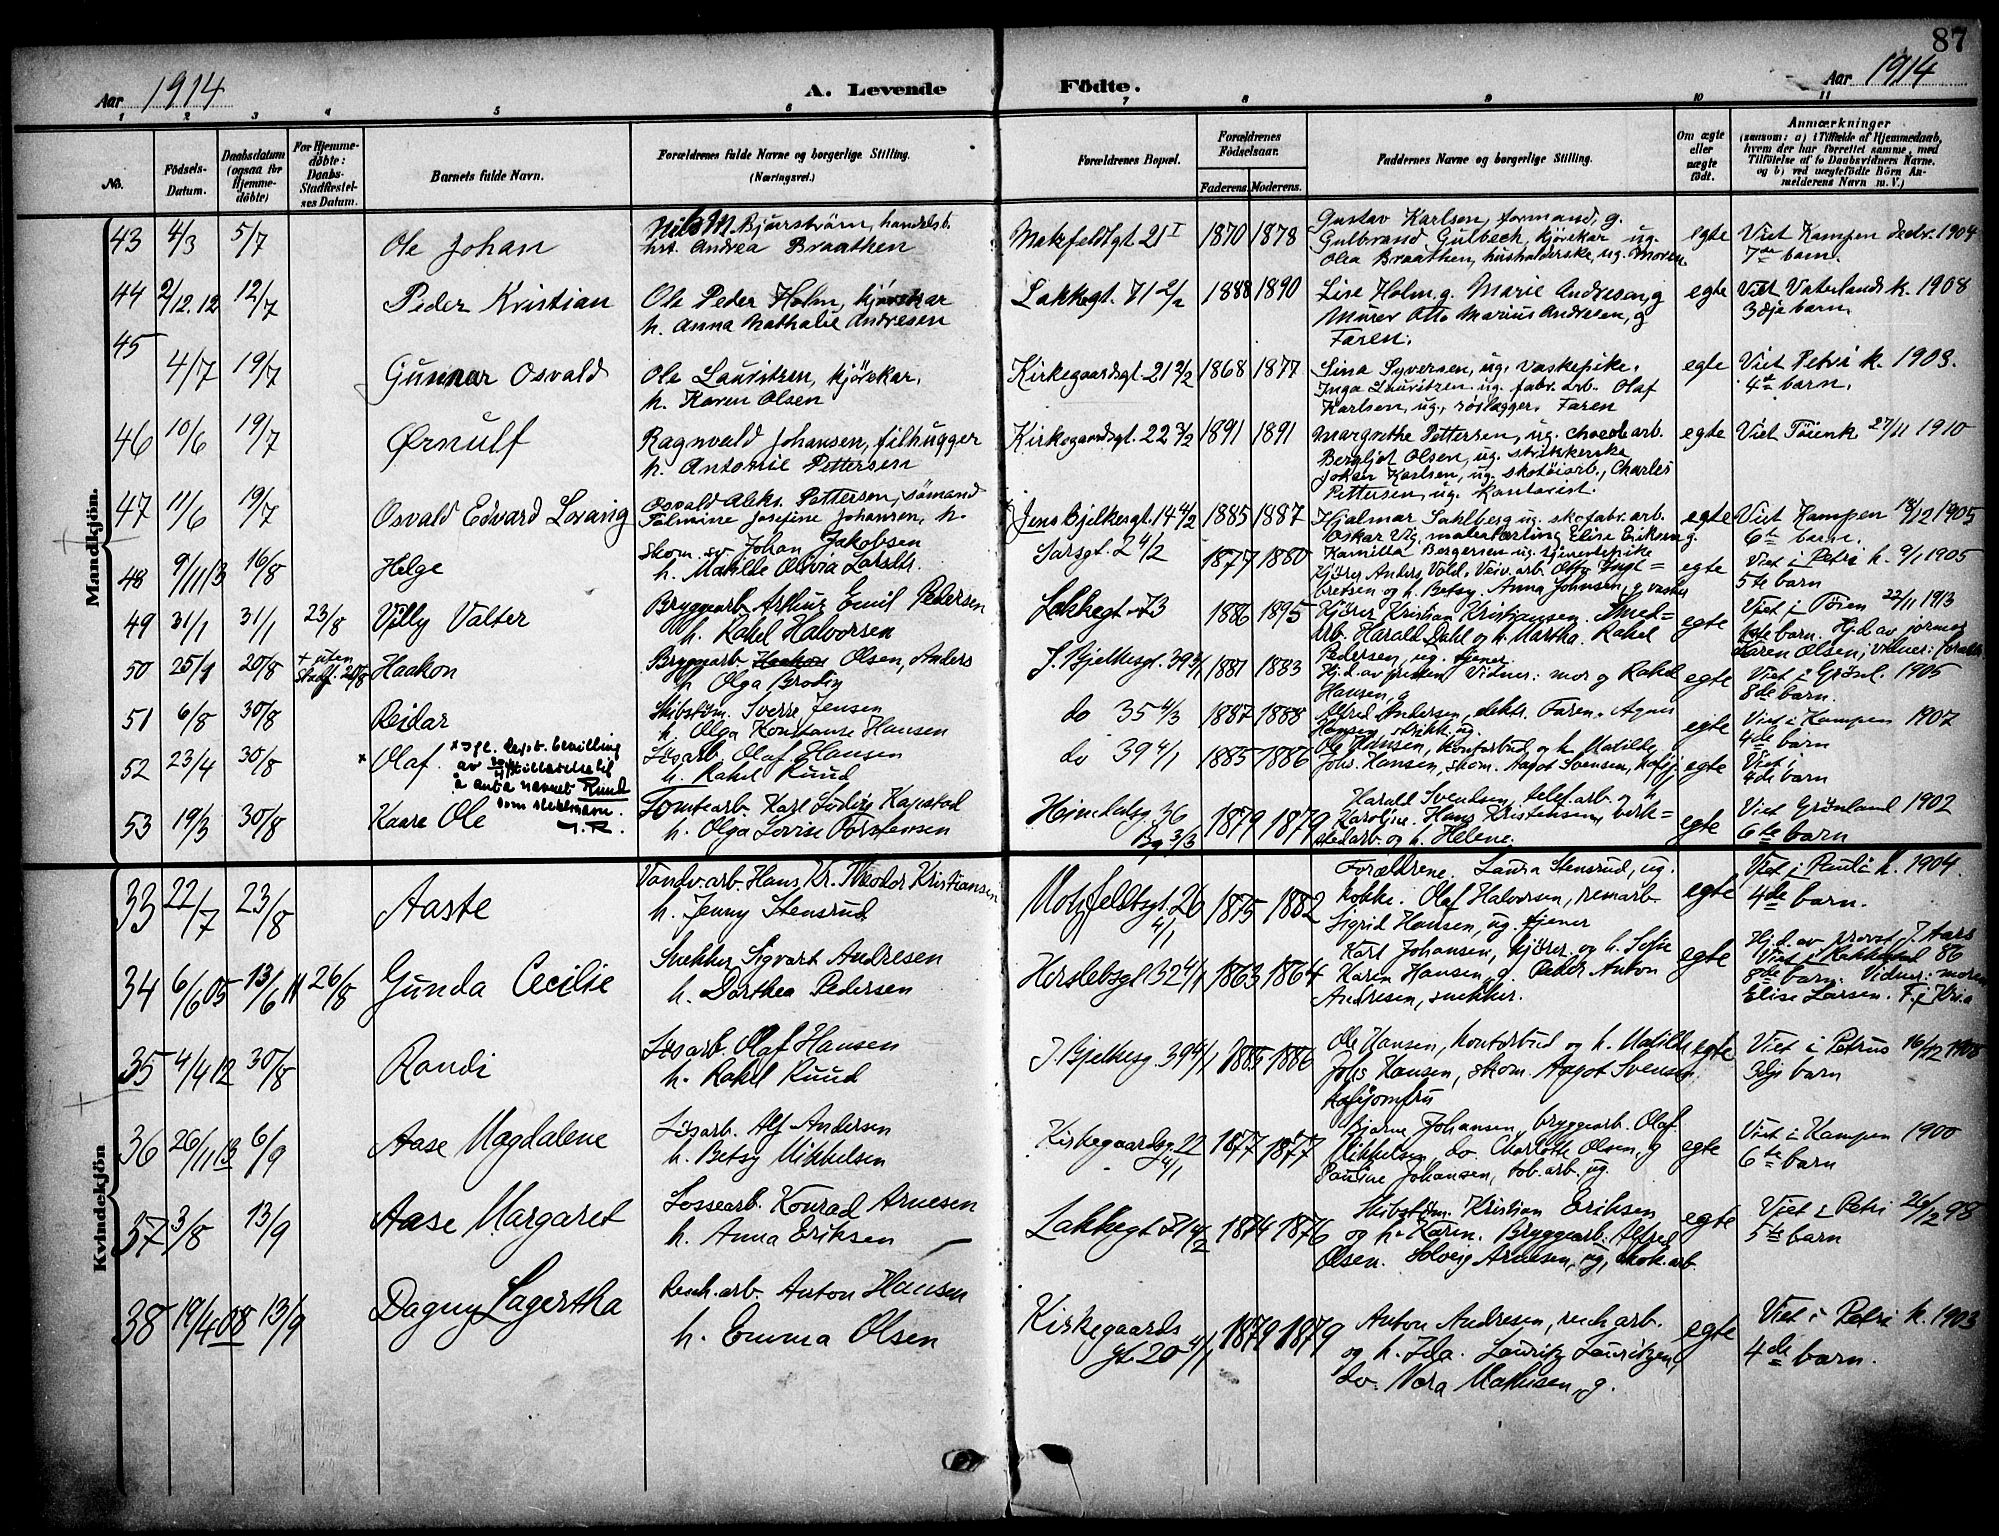 87
Aar 1914
A. Levende Födte.
Aar 1914
1 2 3 4 5 6 7 8 9 10 11
No.
Födsels-Datum.
Daabsdatum (ogsaa for Hjemme-döbte)
For Hjemme-döbte: Daabs-Stadfæstel-ses Datum.
Barnets fulde Navn.
Forældrenes fulde Navne og borgerlige Stilling.
(Næringsvei.)
Forældrenes Bopæl.
Forældrenes Födselsaar.
Faderens. Moderens.
Faddernes Navne og borgerlige Stilling.
Om ægte eller uægte födt.
Anmærkninger
(saasom: a) i Tilfælde af Hjemmedaab,
hvem der har forrettet samme, med
Tilföielse af to Daabsvidners Navne.
og b) ved uægtefödte Börn An-
melderens Navn m. V.)
Mandkjön.
43 4/3 5/7 Ole Johan
Nils M. Bjurström, handelsb.
hst. Andrea Braathen
Motzfeldtgt 21 I 1870 1878
Gustav Karlsen, formand, g.
Gulbrand Gulbeck, kjörekar ug.
Olea Braathen, husholderske, ug. Moren
egte Viet Kampen decbr. 1904
7de barn.
44 2/12.12 12/7 Peder Kristian
Ole Peder Holm, kjörekar
h. Anna Nathalie Andresen
Lakkegt. 71 2/2 1888 1890
Lise Holm g. Marie Andresen, g
Murer Otto Marius Andresen, g
Faren.
egte Viet Vaterlands k. 1908
3dje barn.
45 4/7 19/7 Gunnar Osvald
Ole Lauritzen, kjörekar.
h. Karen Olsen
Kirkegaardsgt. 21 2/2 1868 1877
Lina Syversen, ug. vaskepike.
Inga Lauritzen ug. fabr. arb. Olaf
Karlsen, ug., Faren
egte Viet Petri k. 1903.
4de barn.
46 10/6 19/7 Ørnulf
Ragnvald Johansen, filhugger
h. Antonie Pettersen
Kirkegaardsgt. 22 3/2 1891 1891
Margrethe Pettersen, ug. chocol. arb.
Bergljot Olsen, ug. strikkerske
Johan Karlsen, ug. skotöiarb., Charles
Pettersen, ug. Kontorist.
egte Viet Töienk 27/11 1910
47 11/6 19/7 Osvald Edvard Lorang
Osvald Aleks. Pettersen, sömand
Palmine Josefine Johansen, h.
Jens Bjelkesgt. 14 4/2 1885 1887
Hjalmar Sahlberg ug. skofabr. arb.
Oskar Vig, malerlærling Elise Eriksen g.
egte Viet Kampen 18/12 1905
6te barn.
48 9/11 13 16/8 Helge
Skom. sv. Johan Jakobsen
h. Matilde Olivia Larsdtr.
Sarsgt. 2 4/2 1877 1880
Kamilla Bergersen ug. tjenestepike
Kjörer Anders Vold. Veiv. arb. Otto Engl=
bretsen og h. Betsy. Anna Johnsen, g vasker
egte Viet i Petri k. 9/1 1905
5te barn
49 31/1 31/1 23/8 Villy Valter
Bryggearb Arthur Emil Pedersen
h. Rakel Halvorsen
Lakkegt 73 1886 1895
Kjörer Kristian Kristiansen. Smed=
arb. Harald Dahl og h. Martha. Rakel
Pedersen, ug. tjener.
egte Viet i Töien 22/11 1913
1ste barn. Hj.d. av jormor
Karen Olsen, vidner: foræld.
50 25/9 20/8 + uten stadf. 20/8 Haakon
Bryggearb Haakon Olsen, Anders
h Olga Brodin
J. Bjelkesgt. 39 5/1 1881 1883
Hj.d. av presten Vidner: mor og Rakel
Hansen, g
egte Viet i Grönl. 1905
8de barn.
51 6/8 30/8 Reidar
Skibstöm. Sverre Jensen
h. Olga Konstanse Hansen
do 35 4/3 1887 1888
Alfred Andersen, elektr. Faren. Agnes
Hansen, strikk. ug.
egte Viet i Kampen 1907
4de barn
52 23/4 30/8 × Olaf.
× Jgl. Dept. bevilling
av tilladelse til
å anta navnet Ruud
som slektsnavn.
J.R.
Lösarb. Olaf Hansen
h. Rakel Ruud
do 39 4/1 1885 1886
Ole Hansen, kontorbud og h Matilde
Johs. Hansen, skom. Aagot Svensen, kafjj
egte Viet i
4de barn
53 19/3 30/8 Kaare Ole
Tomtearb. Karl Ludvig Kapstad
h. Olga Lovise Torstensen
Heimdalsg 36
Bg 3/3 1879 1879
Harald Svendsen, telef. arb og h
Karoline. Hans Kristensen, verk=
stedarb og h. Helene.
egte Viet Grönland 1902
6te barn
Kvindekjön
33 22/7 23/8 Aaste
Vandv. arb. Hans Kr. Theodor Kristiansen
h. Jenny Stensrud
Motzfeldtsgt. 26
4/1 1875 1882
Forældrene. Laura Stensrud, ug.
kokke. Olaf Halvorsen, renarb.
Sigrid Hansen, ug. tjener
egte Viet i Pauls k. 1904.
4de barn.
34 6/6 05 13/6 11 26/8 Gunda Cecilie
Snekker Sigvart Andresen
h. Dorthea Pedersen
Herslebsgt 32 4/1 1863 1864
Karl Johansen, kjörer og h. Sofie
Karen Hansen g Peder Anton
Andresen, snekker.
egte Hj.d. av provst J. Aars
Viet i Rakkestad 86
8de barn. Vidner: moren
Elise Larsen. F. i Kria
35 4/4 12 30/8 Randi
Lösarb. Olaf Hansen
h. Rakel Ruud
J. Bjelkesg. 39 4/1 1885 1886
Ole Hansen, kontorbud og h. Matilde
Johs Hansen, skom. Aagot Svensen,
kafijomfru
egte Viet i Petrus 16/12 1908
3dje barn
36 26/11 13 6/9 Aase Magdalene
Lösarb. Alf Andersen
h. Betsy Mikkelsen
Kirkegaardsg. 22
4/1 1877 1877
Bjarne Johansen, bryggearb. Olaf
Mikkelsen, do. Charlotte Olsen, g
Pauline Johansen, tob. arb. ug.
egte Viet i Kampen 1900
6te barn
37 3/8 13/9 Aase Margaret
Lossearb. Konrad Arnesen
h. Anna Eriksen
Lakkegt 71 4/2 1874 1876
Skibstöm. Kristian Eriksen
og h. Karen. Bryggearb. Alfred
Olsen. Solveig Arnesen, ug, chok. arb.
egte Viet i Petri 26/12 98
5te barn
38 19/4 08 13/9 Dagny Lagertha
Renh. arb. Anton Hansen
h. Emma Olsen
Kirkegaards
gt. 20 4/1 1879 1879
Anton Andresen, renh arb.
og h. Ida. Lauritz Lauritzen,
do. Nora Mathisen, g.
egte Viet i Petri k. 1903
4de barn.